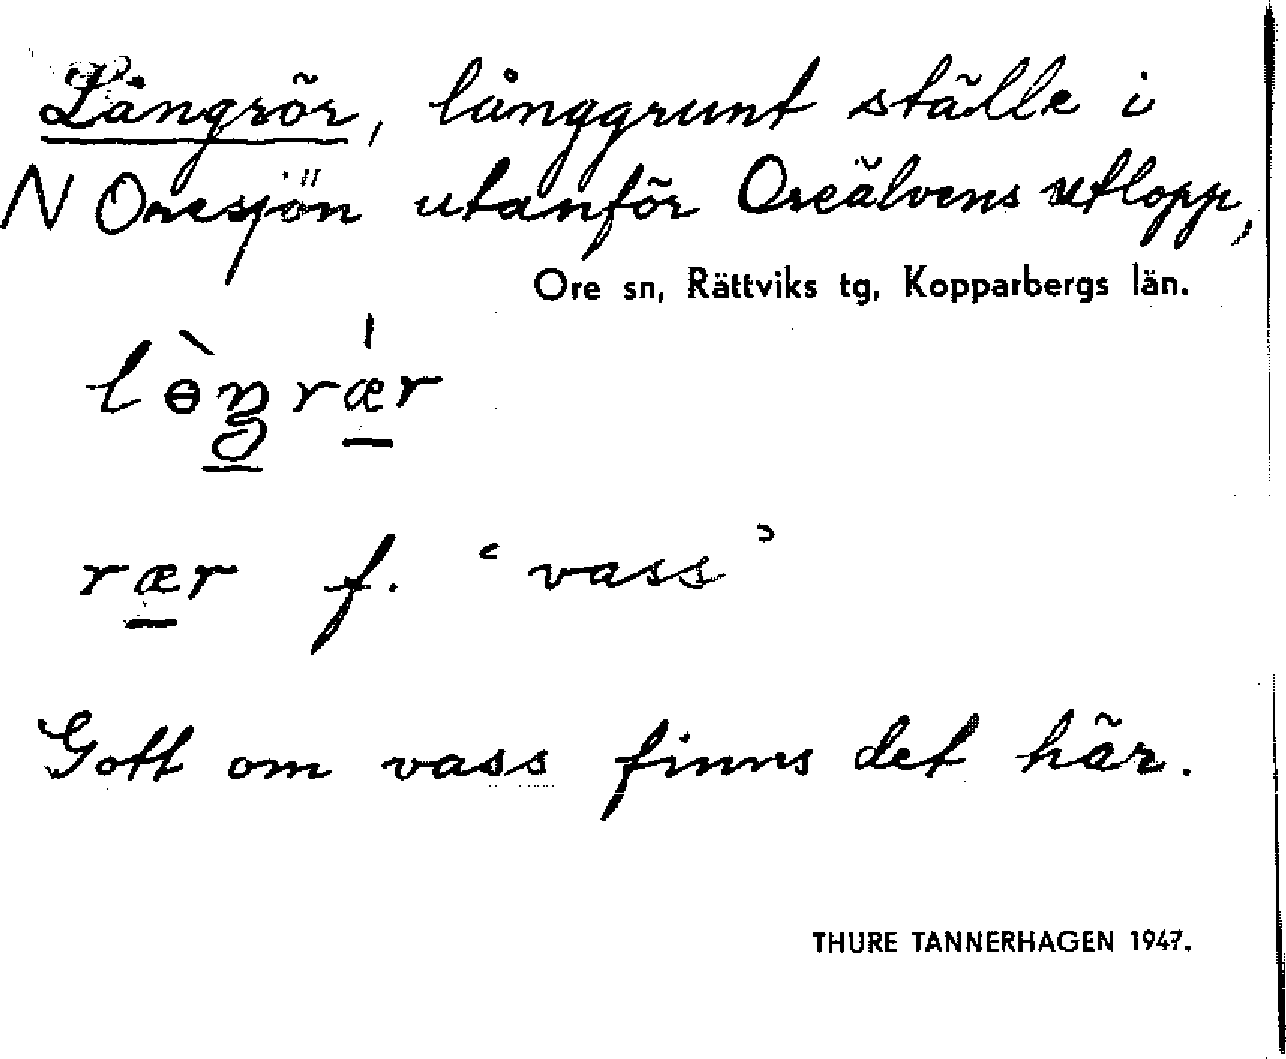 Långrör, långgrunt ställe i
N Oresjön utanför Oreälvens utlopp,
Ore sn, Rättviks tg, Kopparbergs län.
lɵ̀ŋrær
rær f. ‘vass’
Gott om vass finns det här.
THURE TANNERHAGEN 1947.